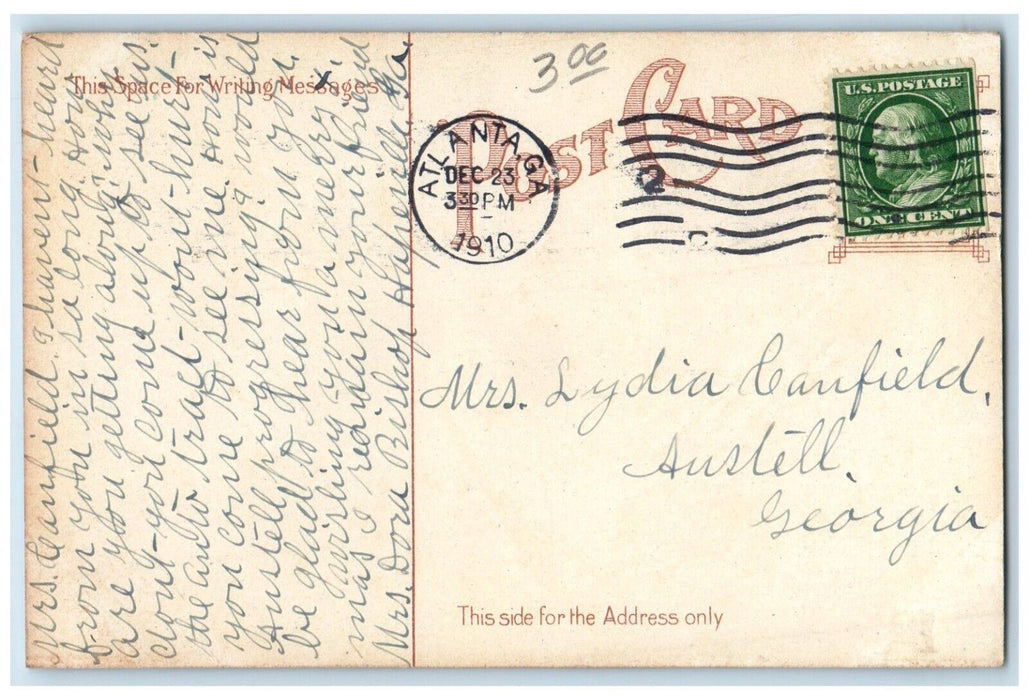 This Space For Writing Messages
POST CARD
3.00
U.S. POSTAGE
ONE CENT
ATLANTA, GA
DEC 23
3 30 PM
1910
2
Mrs. Canfield. I havent-heard
from you in so long. How
are you getting along? why
dont-you come up to see us.
the auto tract-wont-hurt-
you come to see me. How is
Austell progressing? would
be glad to hear from you.
wishing you a merry X
mas I remain your friend
Mrs. Dora Bishop Hapeville Ga.
Mrs. Lydia Canfield,
Austell,
Georgia
This side for the Address only